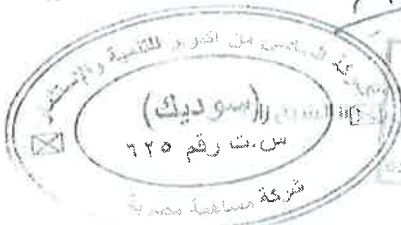 السادس من اكتوبر للتنمية والإستثمار
(سوديك)
س.ت رقم ٦٢٥
شركة مساهمة مصرية